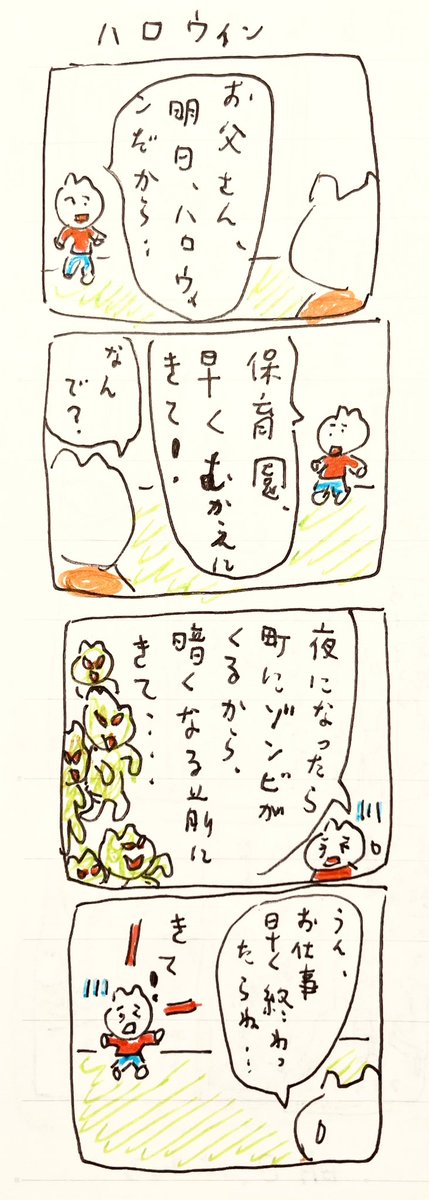 ハロウィン
お父さん、
明日、ハロウィ
ンだから‥
保育園、
早くむかえに
きて!
なん
で?
夜になったら
町にゾンビが
くるから、
暗くなる前に
きて・・・
うん、
お仕事
早く終わっ
たらね‥
きて!